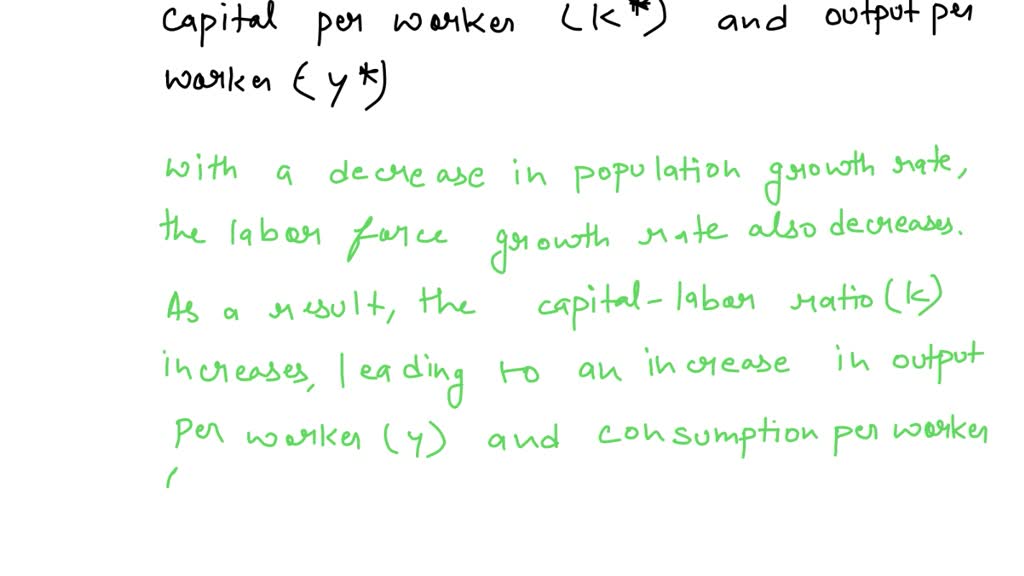 Capital per worker (k*) and output per
worker (y*)
with a decrease in population growth rate,
the labor force growth rate also decreases.
As a result, the capital-labor ratio (k)
increases, leading to an increase in output
per worker (y) and consumption per worker
(